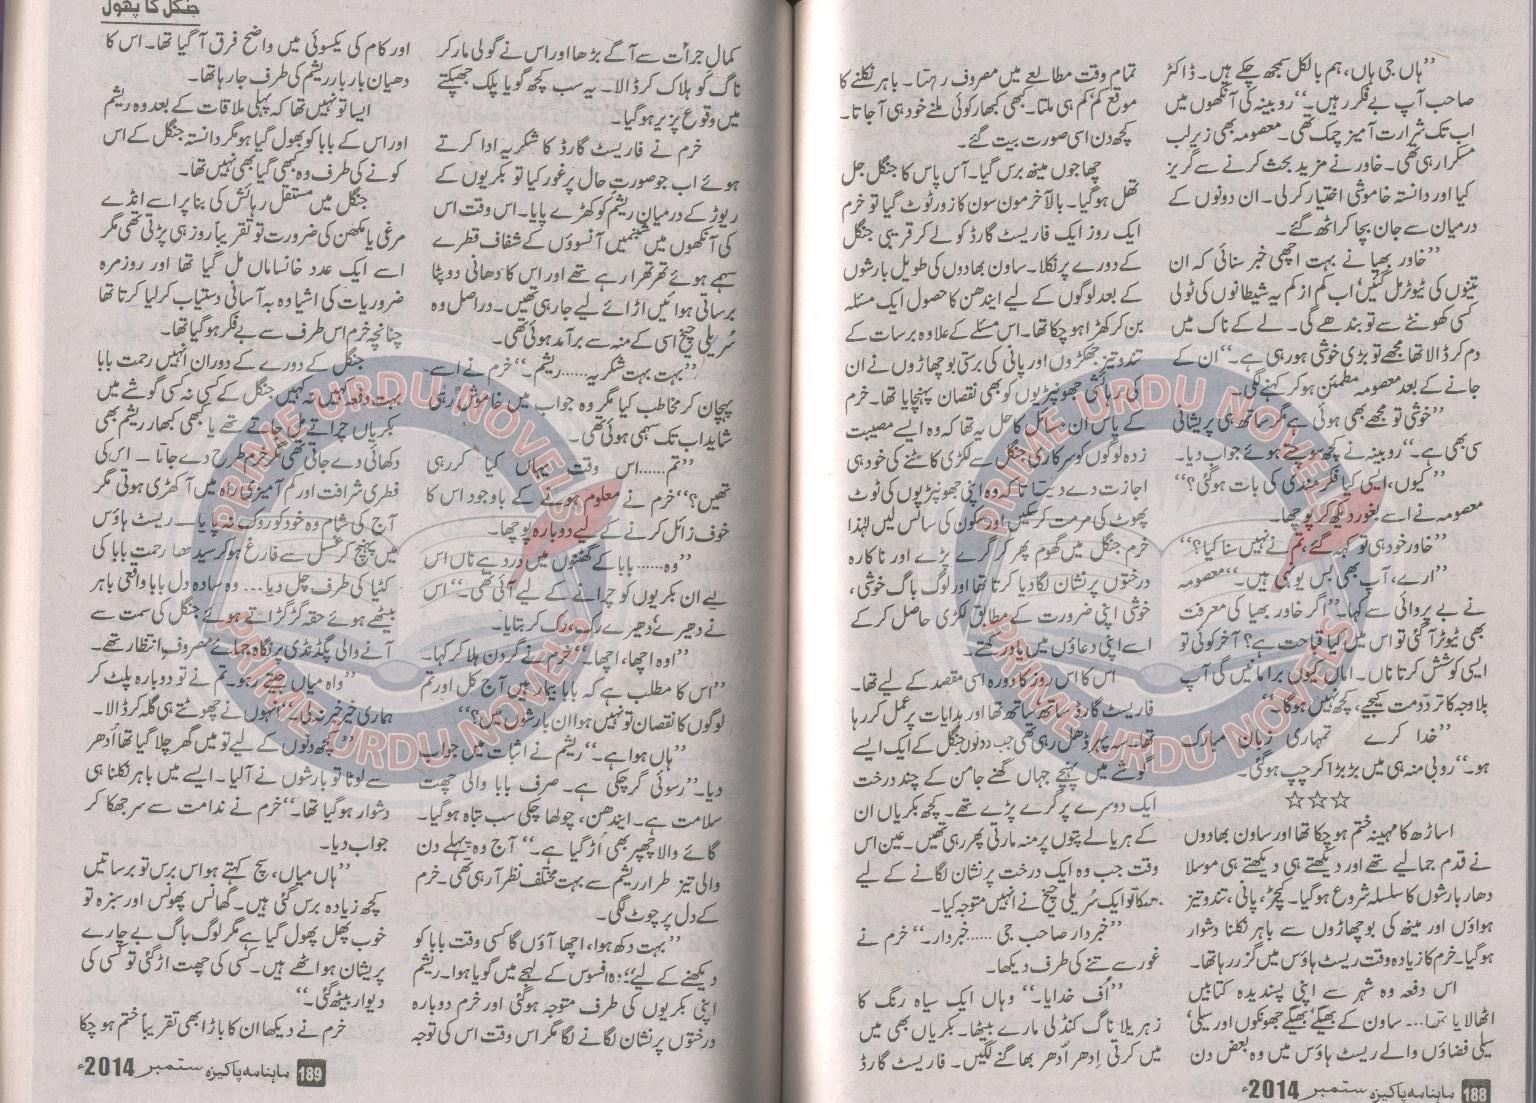 ’’ہاں جی ہاں، ہم بالکل سمجھ چکے ہیں۔ ڈاکٹر
صاحب آپ بے فکر رہیں۔‘‘ روبینہ کی آنکھوں میں
اب تک شرارت آمیز چمک تھی۔ معصومہ بھی زیر لب
مسکرا رہی تھی۔ خاور نے مزید بحث کرنے سے گریز
کیا اور دانستہ خاموشی اختیار کر لی۔ ان دونوں کے
درمیان سے جان بچا کر اٹھ گئے۔
’’خاور بھیا نے بہت اچھی خبر سنائی کہ ان
تینوں کی ٹیوٹر مل گئیں‘ اب کم از کم یہ شیطانوں کی ٹولی
کسی کھونٹے سے تو بندھے گی۔ لے کے ناک میں
دم کر ڈالا تھا مجھے تو بڑی خوشی ہو رہی ہے۔‘‘ ان کے
جانے کے بعد معصومہ مطمئن ہو کر کہنے لگی۔
’’خوشی تو مجھے بھی ہوئی ہے مگر ساتھ ہی پریشانی
سی بھی ہے۔‘‘ روبینہ نے کچھ سوچتے ہوئے جواب دیا۔
’’کیوں، ایسی کیا فکر مندی کی بات ہو گئی؟‘‘
معصومہ نے اسے بغور دیکھ کر پوچھا۔
’’خاور خود ہی تو کہہ گئے، تم نے نہیں سنا کیا؟‘‘
’’ارے، آپ بھی بس یونہی ہیں۔‘‘ معصومہ
نے بے پروائی سے کہا۔ ’’اگر خاور بھیا کی معرفت
بھی ٹیوٹر آ گئی تو اس میں کیا قباحت ہے؟ آخر کوئی تو
ایسی کوشش کرتا ناں۔ اماں کیوں برا مانیں گی آپ
بلاوجہ کا تردد مت کیجیے، کچھ نہیں ہوگا۔‘‘
’’خدا کرے تمہاری زبان مبارک
ہو۔‘‘ روبی منہ ہی میں بڑبڑا کر چپ ہو گئی۔
☆☆☆
اساڑھ کا مہینہ ختم ہو چکا تھا اور ساون بھادوں
نے قدم جما لیے تھے اور دیکھتے ہی دیکھتے ہی موسلا
دھار بارشوں کا سلسلہ شروع ہو گیا۔ کیچڑ، پانی، تند و تیز
ہواؤں اور مینھ کی بوچھاڑوں سے باہر نکلنا دشوار
ہو گیا۔ خرم کا زیادہ وقت ریسٹ ہاؤس میں گزر رہا تھا۔
اس دفعہ وہ شہر سے اپنی پسندیدہ کتابیں
اٹھا لایا تھا۔۔۔ ساون کے بھیگے‘ بھیگے جھونکوں اور سیلی‘
سیلی فضاؤں والے ریسٹ ہاؤس میں وہ بعض دن
تمام وقت مطالعے میں مصروف رہتا۔ باہر نکلنے کا
موقع کم‘ کم ہی ملتا۔ کبھی کبھار کوئی ملنے خود ہی آ جاتا۔
کچھ دن اسی صورت بیت گئے۔
چھاجوں مینھ برس گیا۔ آس پاس کا جنگل جل
تھل ہو گیا۔ بالآخر مون سون کا زور ٹوٹ گیا تو خرم
ایک روز ایک فاریسٹ گارڈ کو لے کر قریبی جنگل
کے دورے پر نکلا۔ ساون بھادوں کی طویل بارشوں
کے بعد لوگوں کے لیے ایندھن کا حصول ایک مسئلہ
بن کر کھڑا ہو چکا تھا۔ اس مسئلے کے علاوہ برسات کے
تند و تیز جھکڑوں اور پانی کی برستی بوچھاڑوں نے ان
کی رہائشی جھونپڑیوں کو بھی نقصان پہنچایا تھا۔ خرم
کے پاس ان مسائل کا حل یہ تھا کہ وہ ایسے مصیبت
زدہ لوگوں کو سرکاری جنگل سے لکڑی کاٹنے کی خود ہی
اجازت دے دیتا تاکہ وہ اپنی جھونپڑیوں کی ٹوٹ
پھوٹ کی مرمت کر سکیں اور سکون کی سانس لیں لہٰذا
خرم جنگل میں گھوم پھر کر گرے پڑے اور ناکارہ
درختوں پر نشان لگا دیا کرتا تھا اور لوگ باگ خوشی،
خوشی اپنی ضرورت کے مطابق لکڑی حاصل کر کے
اسے اپنی دعاؤں میں یاد رکھتے۔
اس کا اس روز کا دورہ اسی مقصد کے لیے تھا۔
فاریسٹ گارڈ ساتھ ساتھ تھا اور ہدایات پر عمل کر رہا
تھا۔ سہ پہر ڈھل رہی تھی جب دونوں جنگل کے ایک ایسے
گوشے میں پہنچے جہاں گھنے جامن کے چند درخت
ایک دوسرے پر گرے پڑے تھے۔ کچھ بکریاں ان
کے ہریالے پتوں پر منہ مارتی پھر رہی تھیں۔ عین اس
وقت جب وہ ایک درخت پر نشان لگانے کے لیے
جھکا تو ایک سُریلی چیخ نے انہیں متوجہ کیا۔
’’خبردار صاحب جی ..... خبردار۔‘‘ خرم نے
غور سے تنے کی طرف دیکھا۔
’’اُف خدایا۔‘‘ وہاں ایک سیاہ رنگ کا
زہریلا ناگ کنڈلی مارے بیٹھا۔ بکریاں بھی میں
میں کرتی اِدھر اُدھر بھاگنے لگیں۔ فاریسٹ گارڈ
188 ماہنامہ پاکیزہ ستمبر 2014ء
جنگل کا پھول
کمال جرأت سے آگے بڑھا اور اس نے گولی مار کر
ناگ کو ہلاک کر ڈالا۔ یہ سب کچھ گویا پلک جھپکتے
میں وقوع پزیر ہو گیا۔
خرم نے فاریسٹ گارڈ کا شکریہ ادا کرتے
ہوئے اب جو صورتِ حال پر غور کیا تو بکریوں کے
ریوڑ کے درمیان ریشم کو کھڑے پایا۔ اس وقت اس
کی آنکھوں میں شبنمیں آنسوؤں کے شفاف قطرے
سہمے ہوئے تھرتھرا رہے تھے اور اس کا دھانی دوپٹا
برساتی ہوائیں اڑائے لیے جا رہی تھیں۔ دراصل وہ
سُریلی چیخ اسی کے منہ سے برآمد ہوئی تھی۔
’’بہت بہت شکریہ..... ریشم۔‘‘ خرم نے اسے
پہچان کر مخاطب کیا مگر وہ جواب میں خاموش رہی
شاید اب تک سہمی ہوئی تھی۔
’’تم..... اس وقت یہاں کیا کر رہی
تھیں؟‘‘ خرم نے معلوم ہونے کے باوجود اس کا
خوف زائل کرنے کے لیے دوبارہ پوچھا۔
’’وہ..... بابا کے گھٹنوں میں درد ہے ناں اس
لیے ان بکریوں کو چرانے کے لیے آئی تھی۔‘‘ اس
نے دھیرے‘ دھیرے رک، رک کر بتایا۔
’’اوہ اچھا، اچھا۔‘‘ خرم نے گردن ہلا کر کہا۔
’’اس کا مطلب ہے کہ بابا بیمار ہیں آج کل اور تم
لوگوں کا نقصان تو نہیں ہوا ان بارشوں میں؟‘‘
’’ہاں ہوا ہے۔‘‘ ریشم نے اثبات میں جواب
دیا۔ ’’رسوئی گر چکی ہے۔ صرف بابا والی چھت
سلامت ہے۔ ایندھن، چولھا چکی سب تباہ ہو گیا۔
گائے والا چھپر بھی اُڑ گیا ہے۔‘‘ آج وہ پہلے دن
والی تیز طرار ریشم سے بہت مختلف نظر آ رہی تھی۔ خرم
کے دل پر چوٹ لگی۔
’’بہت دکھ ہوا، اچھا آؤں گا کسی وقت بابا کو
دیکھنے کے لیے‘‘ وہ افسوس کے لہجے میں گویا ہوا۔ ریشم
اپنی بکریوں کی طرف متوجہ ہو گئی اور خرم دوبارہ
درختوں پر نشان لگانے لگا مگر اس وقت اس کی توجہ
اور کام کی یکسوئی میں واضح فرق آ گیا تھا۔ اس کا
دھیان بار بار ریشم کی طرف جا رہا تھا۔
ایسا تو نہیں تھا کہ پہلی ملاقات کے بعد وہ ریشم
اور اس کے بابا کو بھول گیا ہو مگر دانستہ جنگل کے اس
کونے کی طرف وہ کبھی گیا بھی نہیں تھا۔
جنگل میں مستقل رہائش کی بنا پر اسے انڈے
مرغی یا مکھن کی ضرورت تو تقریباً روز ہی پڑتی تھی مگر
اسے ایک عدد خانساماں مل گیا تھا اور روزمرہ
ضروریات کی اشیا وہ بہ آسانی دستیاب کر لیا کرتا تھا
چنانچہ خرم اس طرف سے بے فکر ہو گیا تھا۔
جنگل کے دورے کے دوران انہیں رحمت بابا
بہت دفعہ کہیں نہ کہیں جنگل کے کسی نہ کسی گوشے میں
بکریاں چراتے مل جاتے تھے یا کبھی کبھار ریشم بھی
دکھائی دے جاتی تھی مگر خرم طرح دے جاتا۔ اس کی
فطری شرافت اور کم آمیزی راہ میں آ کھڑی ہوتی مگر
آج کی شام وہ خود کو روک نہ پایا۔ ریسٹ ہاؤس
میں پہنچ کر غسل سے فارغ ہو کر سیدھا رحمت بابا کی
کٹیا کی طرف چل دیا۔۔۔ وہ سادہ دل بابا واقعی باہر
بیٹھے ہوئے حقہ گڑگڑاتے ہوئے جنگل کی سمت سے
آنے والی پگڈنڈی پر نگاہ جمائے مصروفِ انتظار تھے۔
’’واہ میاں جیتے رہو۔ تم نے تو دوبارہ پلٹ کر
ہماری خیر خبر نہ لی۔‘‘ انہوں نے چھوٹتے ہی گلہ کر ڈالا۔
’’کچھ دنوں کے لیے تو میں گھر چلا گیا تھا اُدھر
سے لوٹا تو بارشوں نے آ لیا۔ ایسے میں باہر نکلنا ہی
دشوار ہو گیا تھا۔‘‘ خرم نے ندامت سے سر جھکا کر
جواب دیا۔
’’ہاں میاں، سچ کہتے ہو اس برس تو برساتیں
کچھ زیادہ برس گئی ہیں۔ گھانس پھونس اور سبزہ تو
خوب پھل پھول گیا ہے مگر لوگ باگ بے چارے
پریشان ہو اٹھے ہیں۔ کسی کی چھت اڑ گئی تو کسی کی
دیوار بیٹھ گئی۔‘‘
خرم نے دیکھا ان کا باڑا بھی تقریباً ختم ہو چکا
189 ماہنامہ پاکیزہ ستمبر 2014ء
PRIME URDU NOVELS
PRIME URDU NOVELS
PRIME URDU NOVELS
PRIME URDU NOVELS